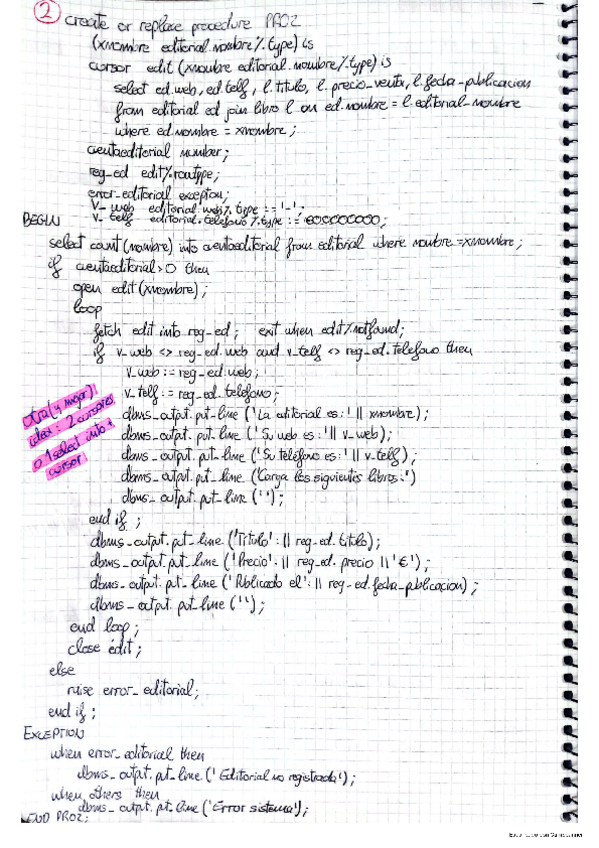 2 create or replace procedure PRO2
(xnombre editorial.nombre%.type) is
cursor edit (xnombre editorial.nombre%.type) is
select ed.web, ed.telf, l.titulo, l.precio_venta, l.fecha-publicacion
from editorial ed join libro l on ed.nombre = l.editorial-nombre
where ed.nombre = xnombre;
cuentaeditorial number;
reg-ed edit%rowtype;
error-editorial exception;
V_ web editorial.web%.type := '-';
BEGIN V_ telf editorial.telefono%.type :=
select count (nombre) into cuentaeditorial from editorial where nombre = xnombre;
if cuentaeditorial > 0 then
open edit (xnombre);
loop
fetch edit into reg-ed; exit when edit%notfound;
if v_web <> reg-ed.web and v_telf <> reg-ed.telefono then
v_web := reg-ed.web;
v_telf := reg-ed.telefono;
otra (y mejor)
idea: 2 cursores
o 1 select into +
cursor
dbms_output.put-line ('La editorial es:' || xnombre);
dbms-output.put-line ('Su web es:' || v_web);
dbms_output.put-line ('Su teléfono es:' || v_telf);
dbms_output.put-line ('Carga los siguientes libros:')
dbms_output.put-line (' ');
end if ;
dbms_output.put-line ('Título': || reg-ed.titulo);
dbms_output.put-line ('Precio': || reg-ed.precio || '€');
dbms_output.put-line ('Publicado el': || reg-ed.fecha-publicacion);
dbms_output.put-line (' ');
end loop;
close edit;
else
raise error_editorial;
end if ;
EXCEPTION
when error_editorial then
dbms_output.put-line ('Editorial no registrada');
when others then
dbms_output.put-line ('Error sistema');
END PRO2;